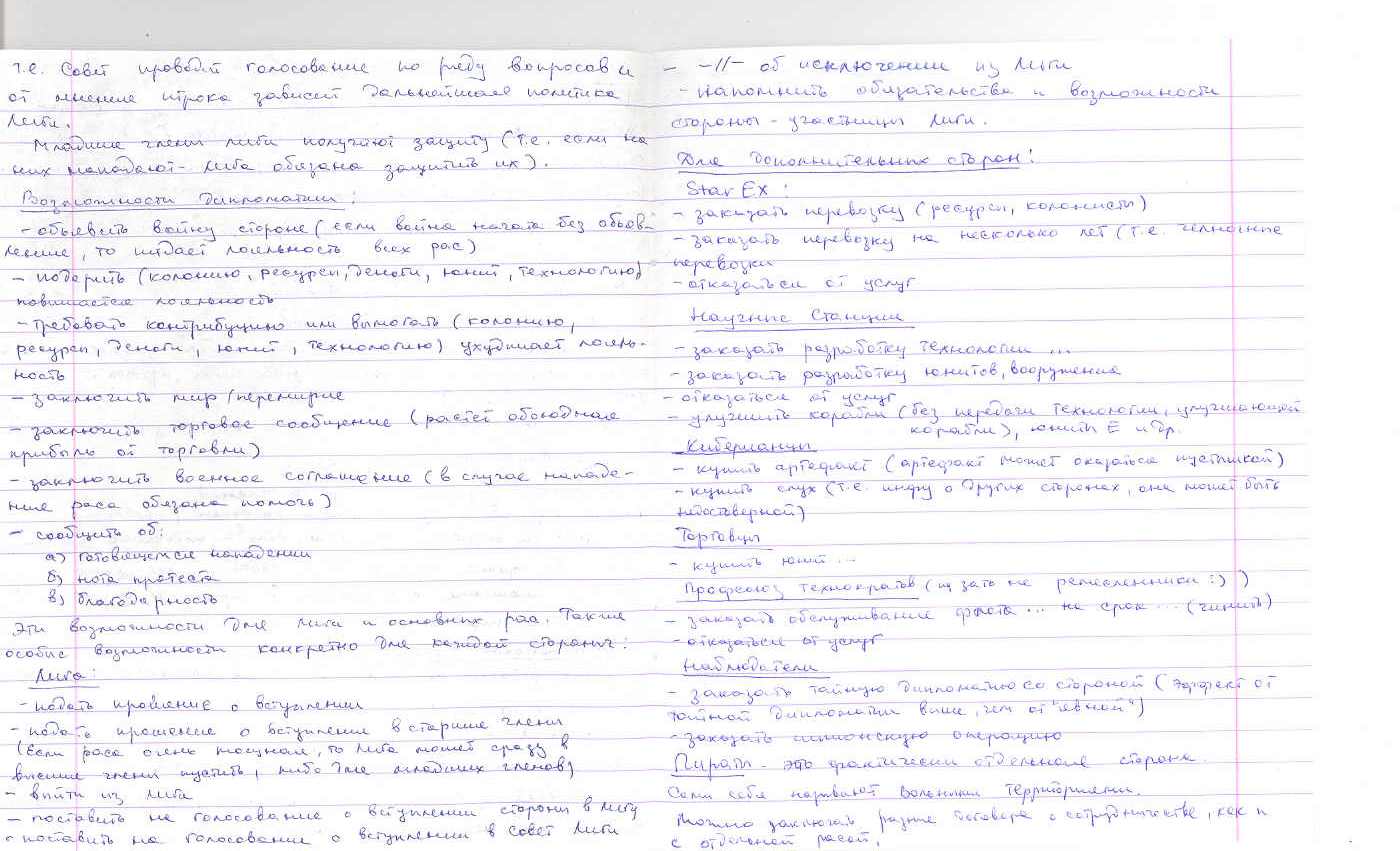 т.е. Совет проводит голосование по ряду вопросов и
от мнение игрока зависит дальнейшая политика
Лиги.
Младшие члены лиги получают защиту (т.е. если на
них нападают - Лига обязана защитить их).
Возможности дипломатии:
- объявить войну стороне (если война начата без объяв-
ления, то падает лояльность всех рас)
- подарить (колонию, ресурсы, деньги, юнит, технологию)
повышается лояльность
- требовать контрибуцию или вымогать (колонию,
ресурсы, деньги, юнит, технологию) ухудшает лояль-
ность
- заключить мир/перемирие
- заключить торговое сообщение (растёт обоюдная
прибыль от торговли)
- заключить военное соглашение (в случае нападе-
ния раса обязана помочь)
- сообщить об:
а) готовящемся нападении
б) нота протеста
в) благодарность
Эти возможности для лиги и основных рас. Также
особые возможности конкретно для каждой стороны:
Лига:
- подать прошение о вступлении
- подать прошение о вступление в старшие члены
(Если раса очень мощная, то Лига может сразу в
высшие члены пустить, либо для младших членов)
- выйти из лиги
- поставить на голосование о вступлении стороны в лигу
- поставить на голосование о вступлении в Совет Лиги
- -//- об исключении из Лиги
- напомнить обязательства и возможности
стороны - участницы Лиги.
Для дополнительных сторон:
Star Ex:
- заказать перевозку (ресурсы, колонисты)
- заказать перевозку на несколько лет (т.е. челночные
перевозки
- отказаться от услуг
Научные Станции
- заказать разработку технологии ...
- заказать разработку юнитов, вооружения
- отказаться от услуг
- улучшить корабли (без передачи технологии, улучшающей
корабли), юниты Е и др.
Киберианцы
- купить артефакт (артефакт может оказаться пустышкой)
- купить слух (т.е. инфу о других сторонах, она может быть
недостоверной)
Торговцы
- купить юнит ...
Профсоюз технократов (и зато не ремесленники :) )
- заказать обслуживание флота ... на срок ... (чинить)
- отказаться от услуг
Наблюдатели
- заказать тайную дипломатию со стороной (эффект от
тайной дипломатии выше, чем от "явной")
- заказать шпионскую операцию
Пираты - это фактически отдельная сторона.
Сами себя называют Вольными Территориями.
Можно заключать разные договора о сотрудничестве, как и
с отдельной расой.